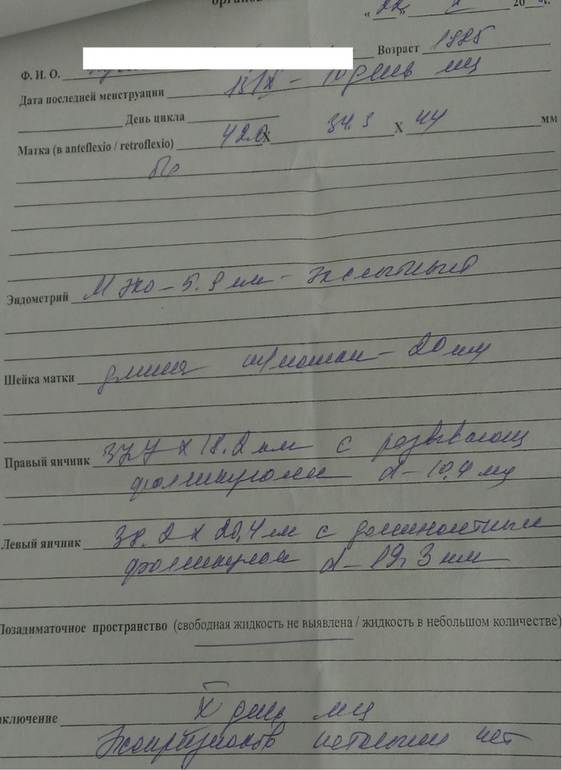 органов
"22" 20 г.
Ф. И. О. Возраст 1985
Дата последней менструации 13 IX – 10 день мц
День цикла
Матка (в anteflexio / retroflexio) 42.0 X 34.3 X 44 мм
б/о
Эндометрий М эхо – 5.9 мм –
Шейка матки длина ш/матки – 20 мм
Правый яичник 37,7 х 18.2 мм с развивающ
фолликулом d – 10,4 мм
Левый яичник 38.2 х 20,4 мм с доминантным
фолликулом d – 19,3 мм
Позадиматочное пространство (свободная жидкость не выявлена / жидкость в небольшом количестве)
аключение X день мц
Эхопризнаков патологии нет